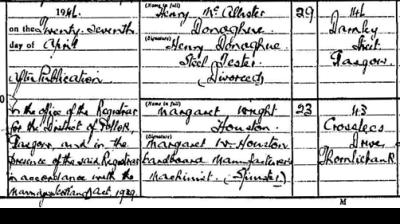 1946.
on the Twenty-seventh
day of April
After Publication
In the Office of the Registrar
for the District of Pollok,
Glasgow, and in the
presence of the said Registrar
in accordance with the
Marriage (Scotland) Act, 1939.
(Name in full)
Henry McAllister
Donaghue
(Signature)
Henry Donaghue
Steel Tester
(Divorced)
29
114
Darnley
Street
Glasgow
(Name in full)
Margaret Wright
Houston
(Signature)
Margaret W. Houston
Cardboard Manufacturers
Machinist. (Spinster)
23
43
Crosslees
Drive
Thornliebank
M